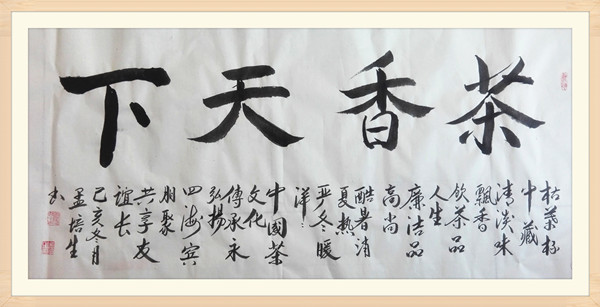 茶香天下
枯葉杯
中藏
清淡味
飄香
飲茶品
人生
廉洁品
高尚
酷暑消
夏熱
严冬暖
洋:
中國茶
文化
傳承永
弘扬
四海宾
朋聚
共享友
谊长
己亥冬月
孟培生
书